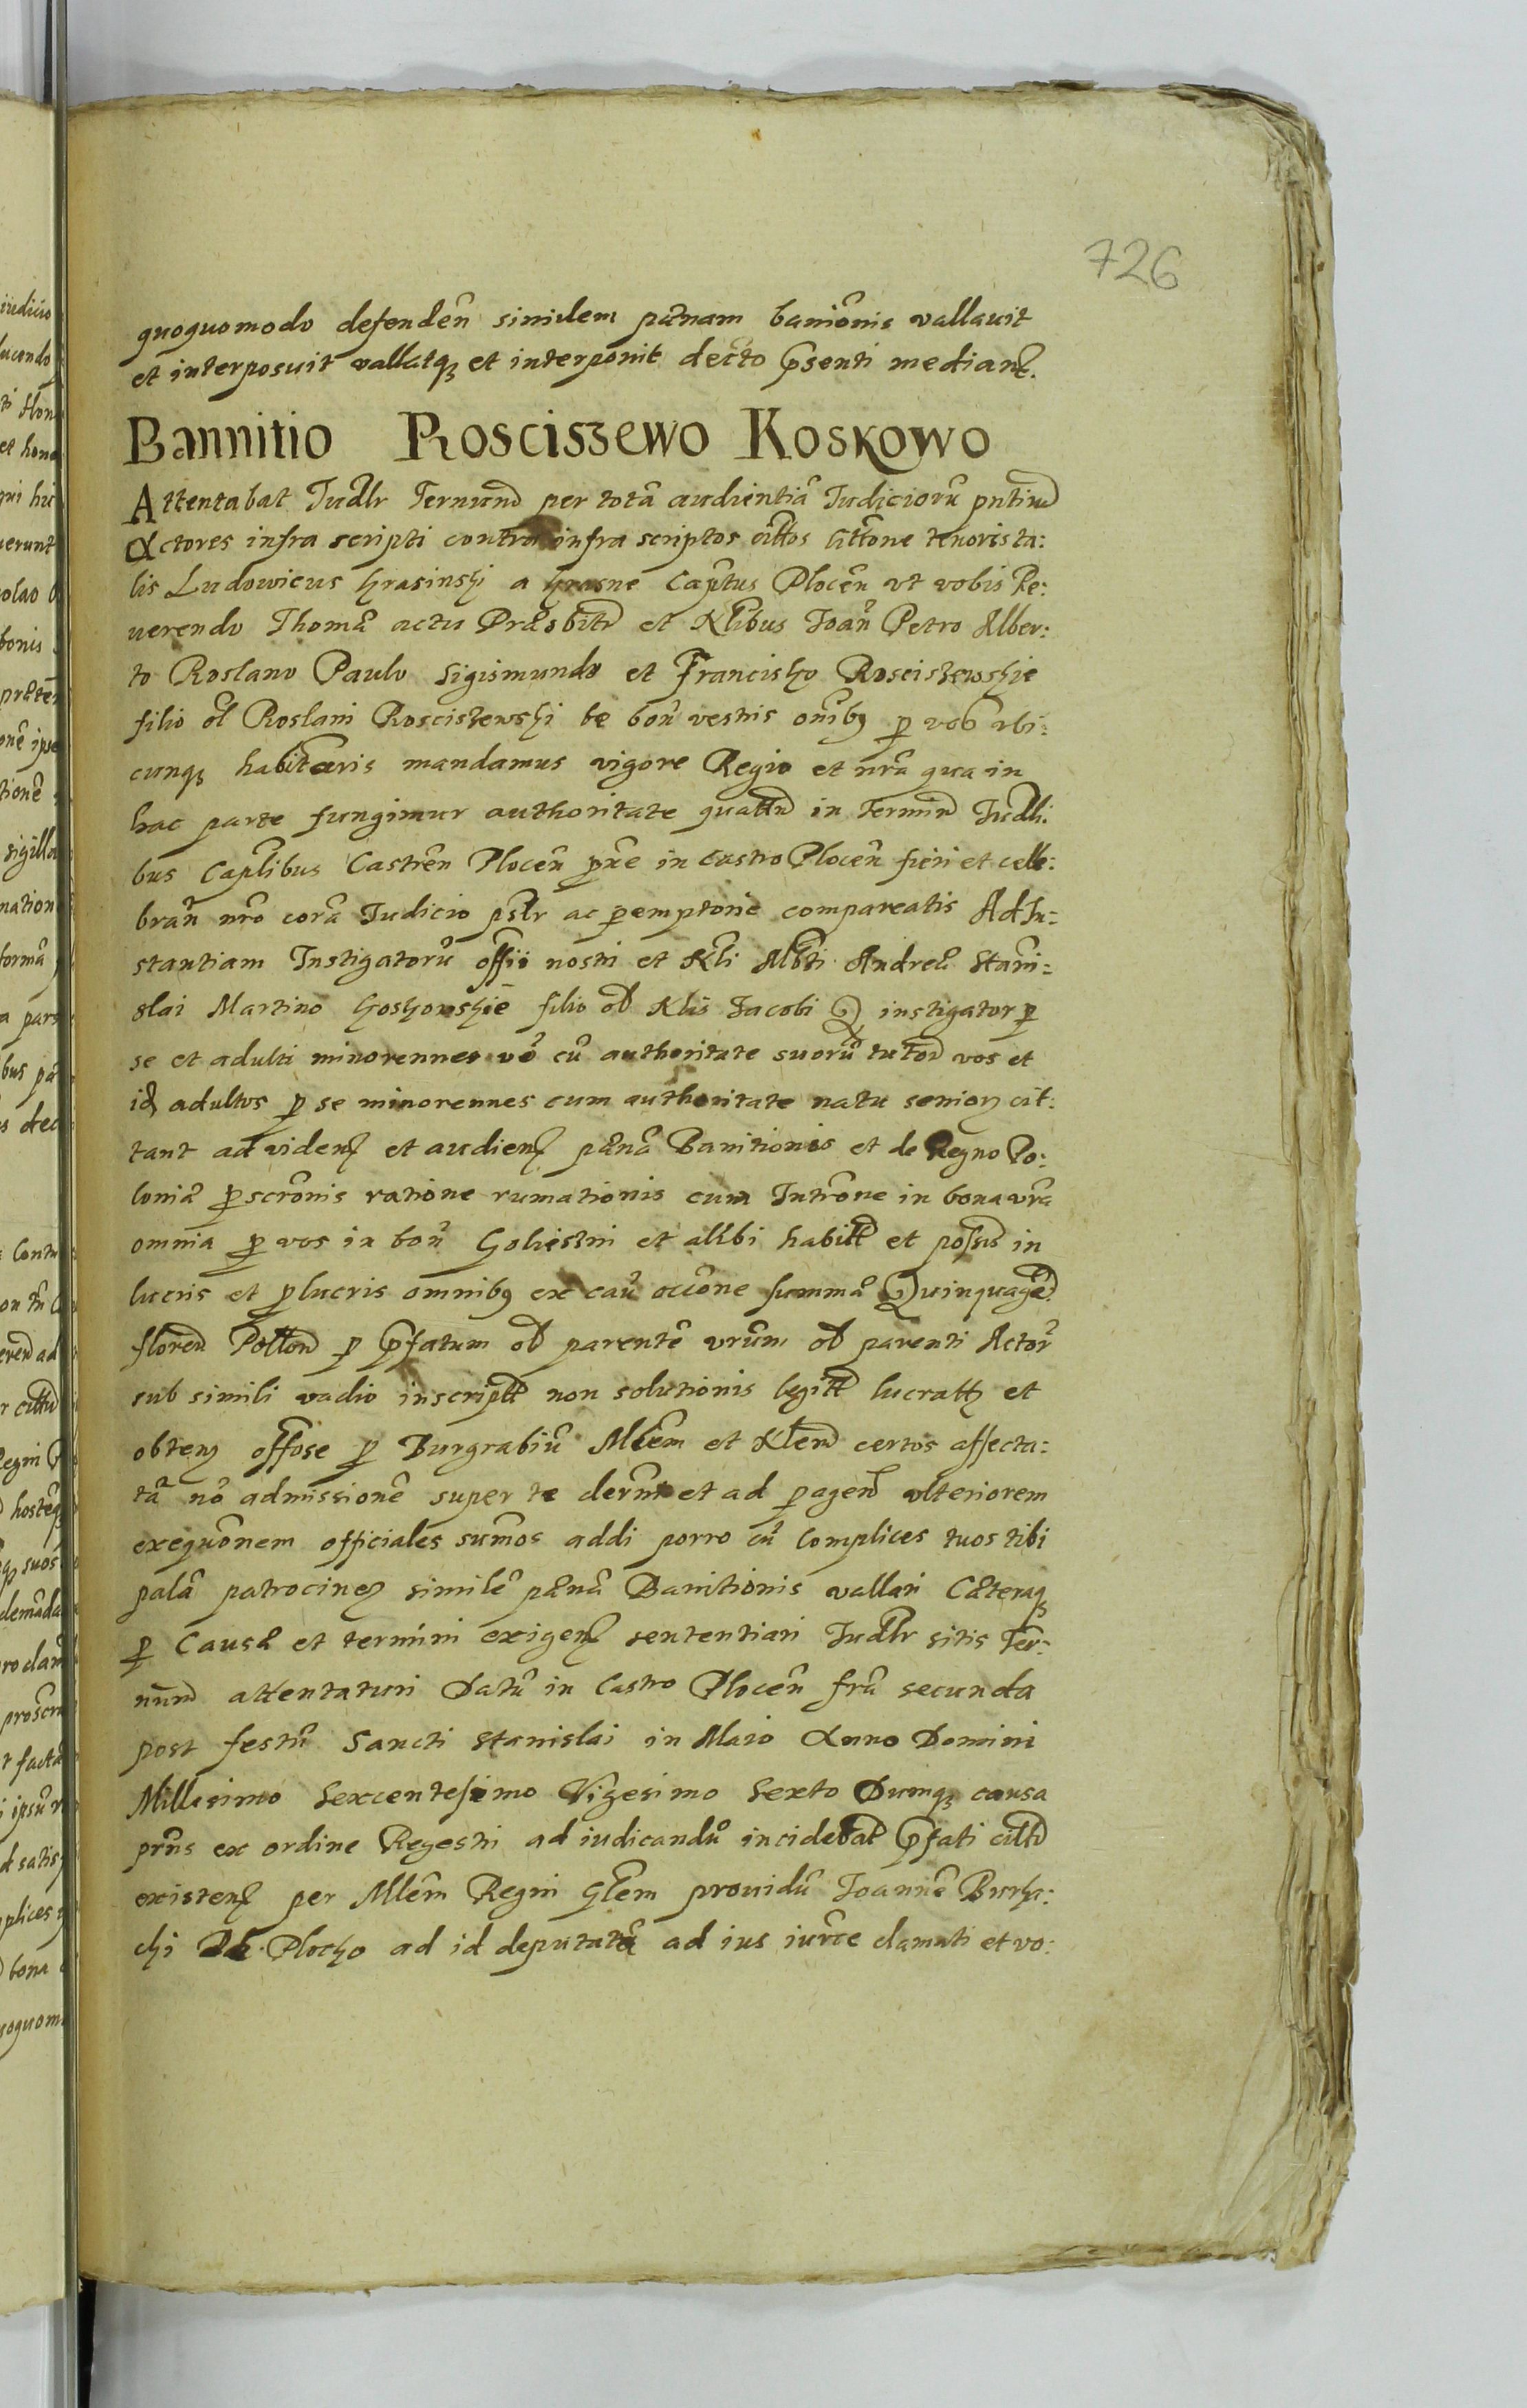 726
quoquomodo defendeñ similem pœnam baniõnis vallauit
et interposuit vallatq3 et interponit decto p̃senti median̨t.
Bannitio Roscissewo Koskowo
Attentabat Iudlr Termind per totã audientiã Iudiciorũ pntiud
Actores infra scripti contra infra scriptos cittos cittõne tenoris ta:
lis Ludowicus Krasinski a Krasne Capt̃us Plocen̄ vt vobis Re:
uerendo Thomæ actu Præsbitr̃ et Nl̃ibus Ioan̄ Petro Alber:
to Roslano Paulo Sigismundo et Francisko Roscisewskie
filio ol̃ Roslani Roscisewski de bon̄ vestris om̃ibq p vob̃ vbi:
cunq3 habit̃ maris mandamus vigore Regio et nrã qua in
hac parte fungimur authoritate quattñ in Termiñ Iudli:
bus Capl̃ibus Castreñ Ploceñ px̃e in Castro Ploceñ fieri et cele:
brañ nrõ corã Iudicio ps̃lr ac peremptorie compareatis Ad In:
stantiam Instigatorũ offii nostri et Nl̃i Albti Andreæ Stani:
slai Martino Koskowskie filio ol̃ Nl̃is Iacobi Q instigator p
se et adulti minorennes võ cũ authoritate suorũ tutor̃ vos et
id̨ adultos p se minorennes cum authoritate natu senior̨ cit:
tant ad viden̨ et audien̨ pænã Banitionis et de Regno Po:
loniæ p̃scrõnis ratione rumationis cum Intrõne in bona vrã
omnia p vos in bon̄ Goliesini et alibi habitt̃ et possis̃ in
lucris et plucris omnibq ex caũ occõne summæ Quinquagẽ
floreñ Pollon̄ p p̃fatum ol̃ parentẽ vrũm ol̃ parenti Actor̃
sub simili vadio inscriptt̃ non solutionis legitt̃ lucratt̨ et
obten̨ offose p Burgrabiũ Ml̃em et Nl̃em certos affecta:
tã nõ admissionẽ super te derm̃t et ad p agen̄ vlteriorem
exequõnem officiales sum̃os addi porro cũ complices tuos tibi
palã patrocinen̨ similẽ pænã Banitionis vallari Cæteraq3
p Causæ et termini exigen̨ sententiari Iudlr sitis Ter:
minũ attentaturi Datũ in Castro Ploceñ frã secunda
post festũ Sancti Stanislai in Maio Anno Domini
Millesimo Sexcentesimo Vigesimo Sexto Dumq3 causa
prñs ex ordine Regestri ad iudicandũ incidebat p̃fati citti
existen̨ per Ml̃em Regni Gl̃em prouidũ Ioannẽ Burka:
chi De Plocko ad id deputatũ ad ius iurẽ clamati et vo: